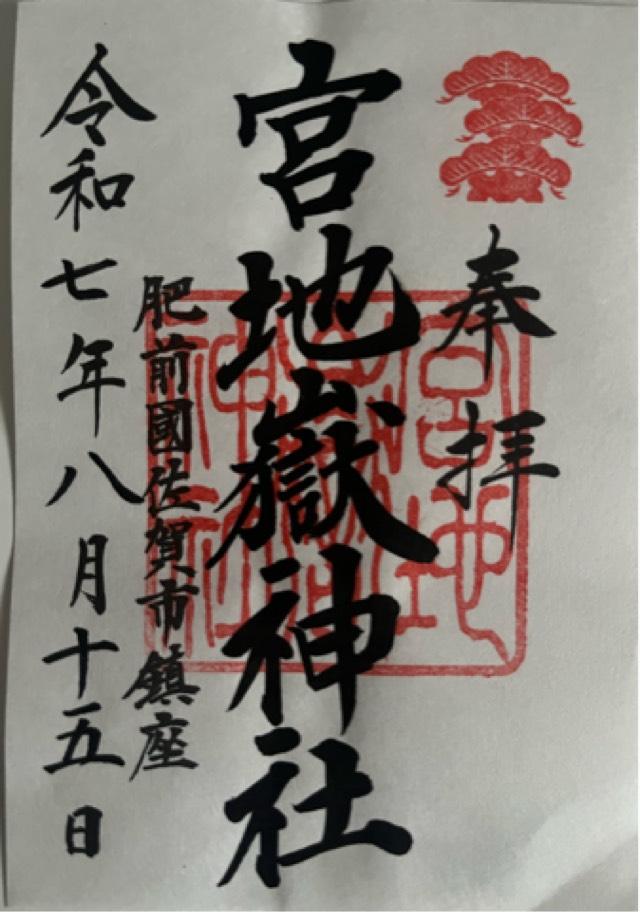 奉拝
宮地嶽神社
肥前國佐賀市鎮座
令和七年八月十五日
宮地
嶽
神社